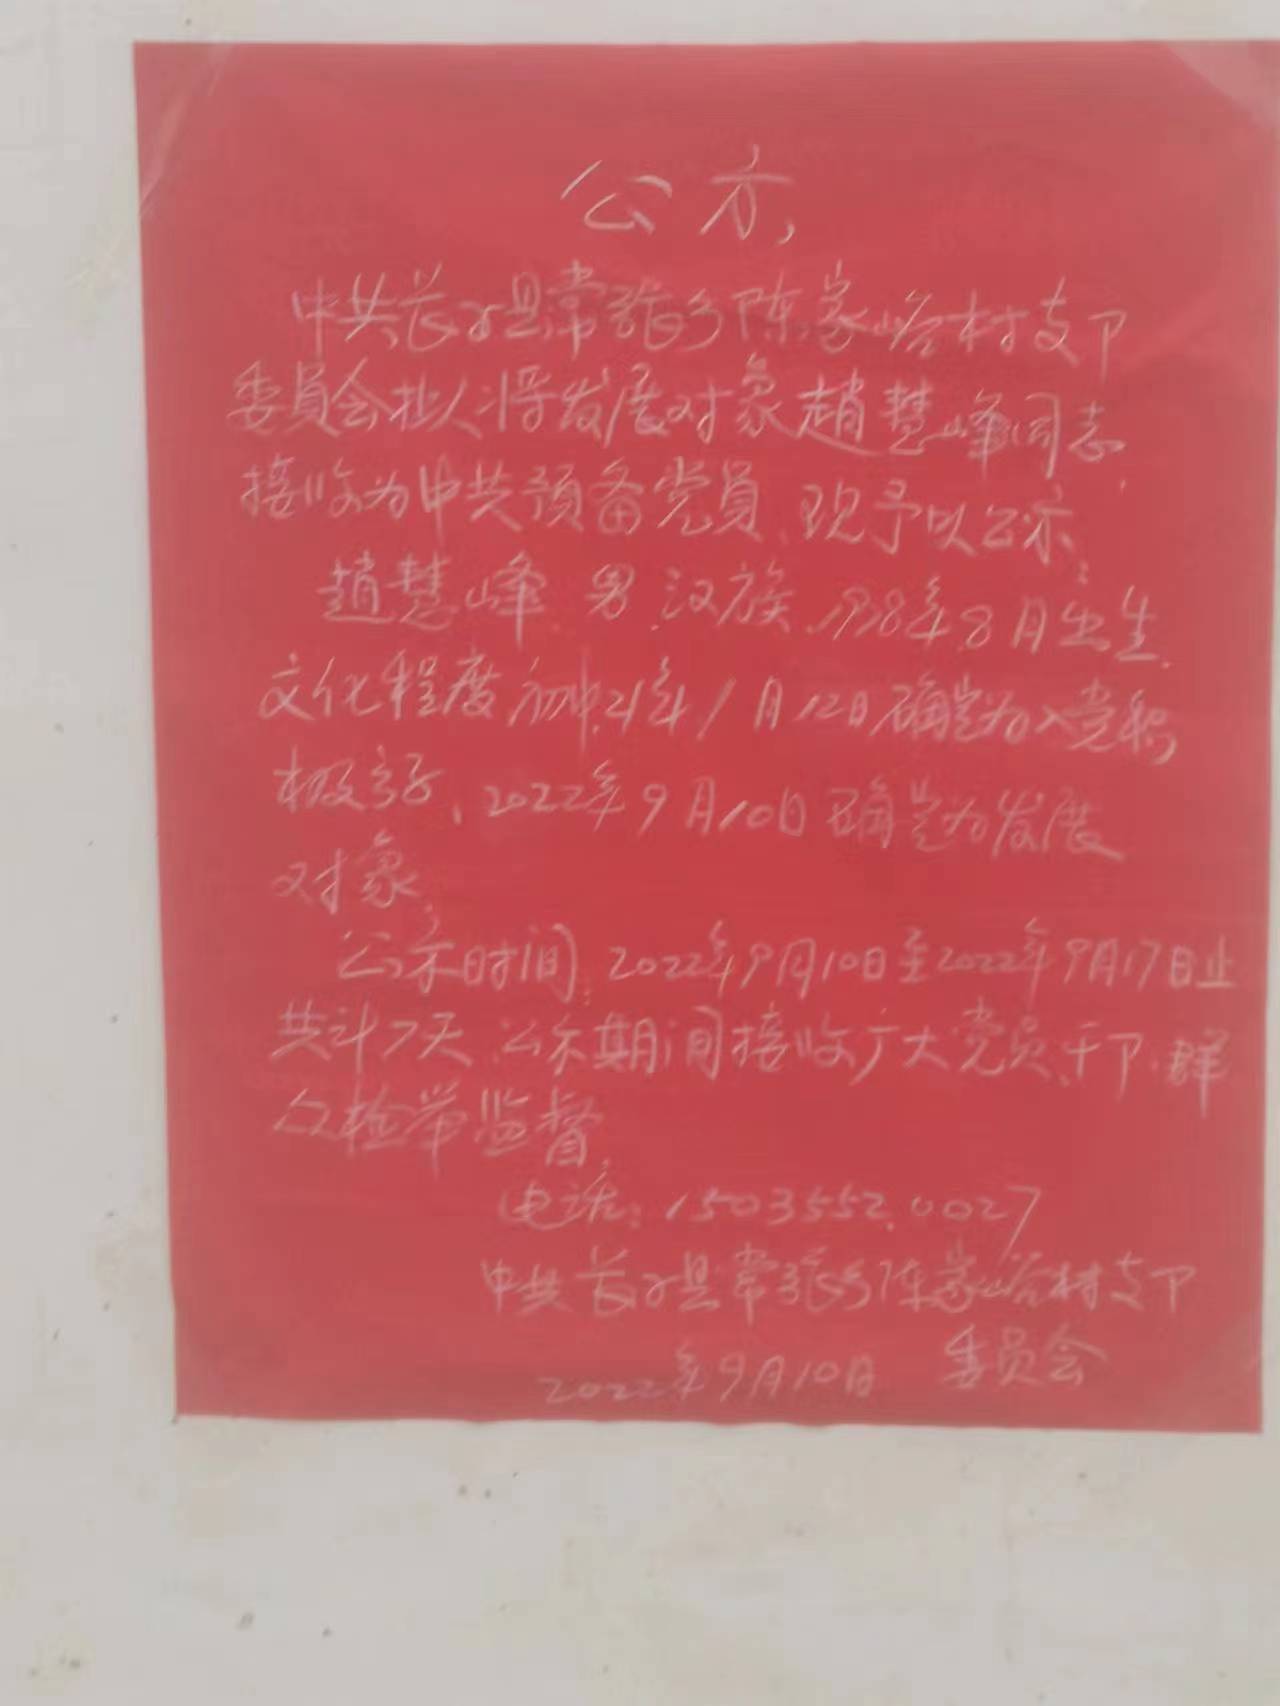 公示
中共长子县常张乡陈家峪村支卩
委员会拟将发展对象趙慧峰同志,
接收为中共预备党员、现予以公示:
趙慧峰、男、汉族、1998年8月出生、
文化程度初中、21年1月12日确定为入党积
极分子、2022年9月10日确定为发展
对象,
公示时间:2022年9月10日至2022年9月17日止
共计7天、公示期间接收广大党员、干卩、群
众检举监督,
电话:15035520027
中共长子县常张乡陈家峪村支卩
委员会
2022年9月10日